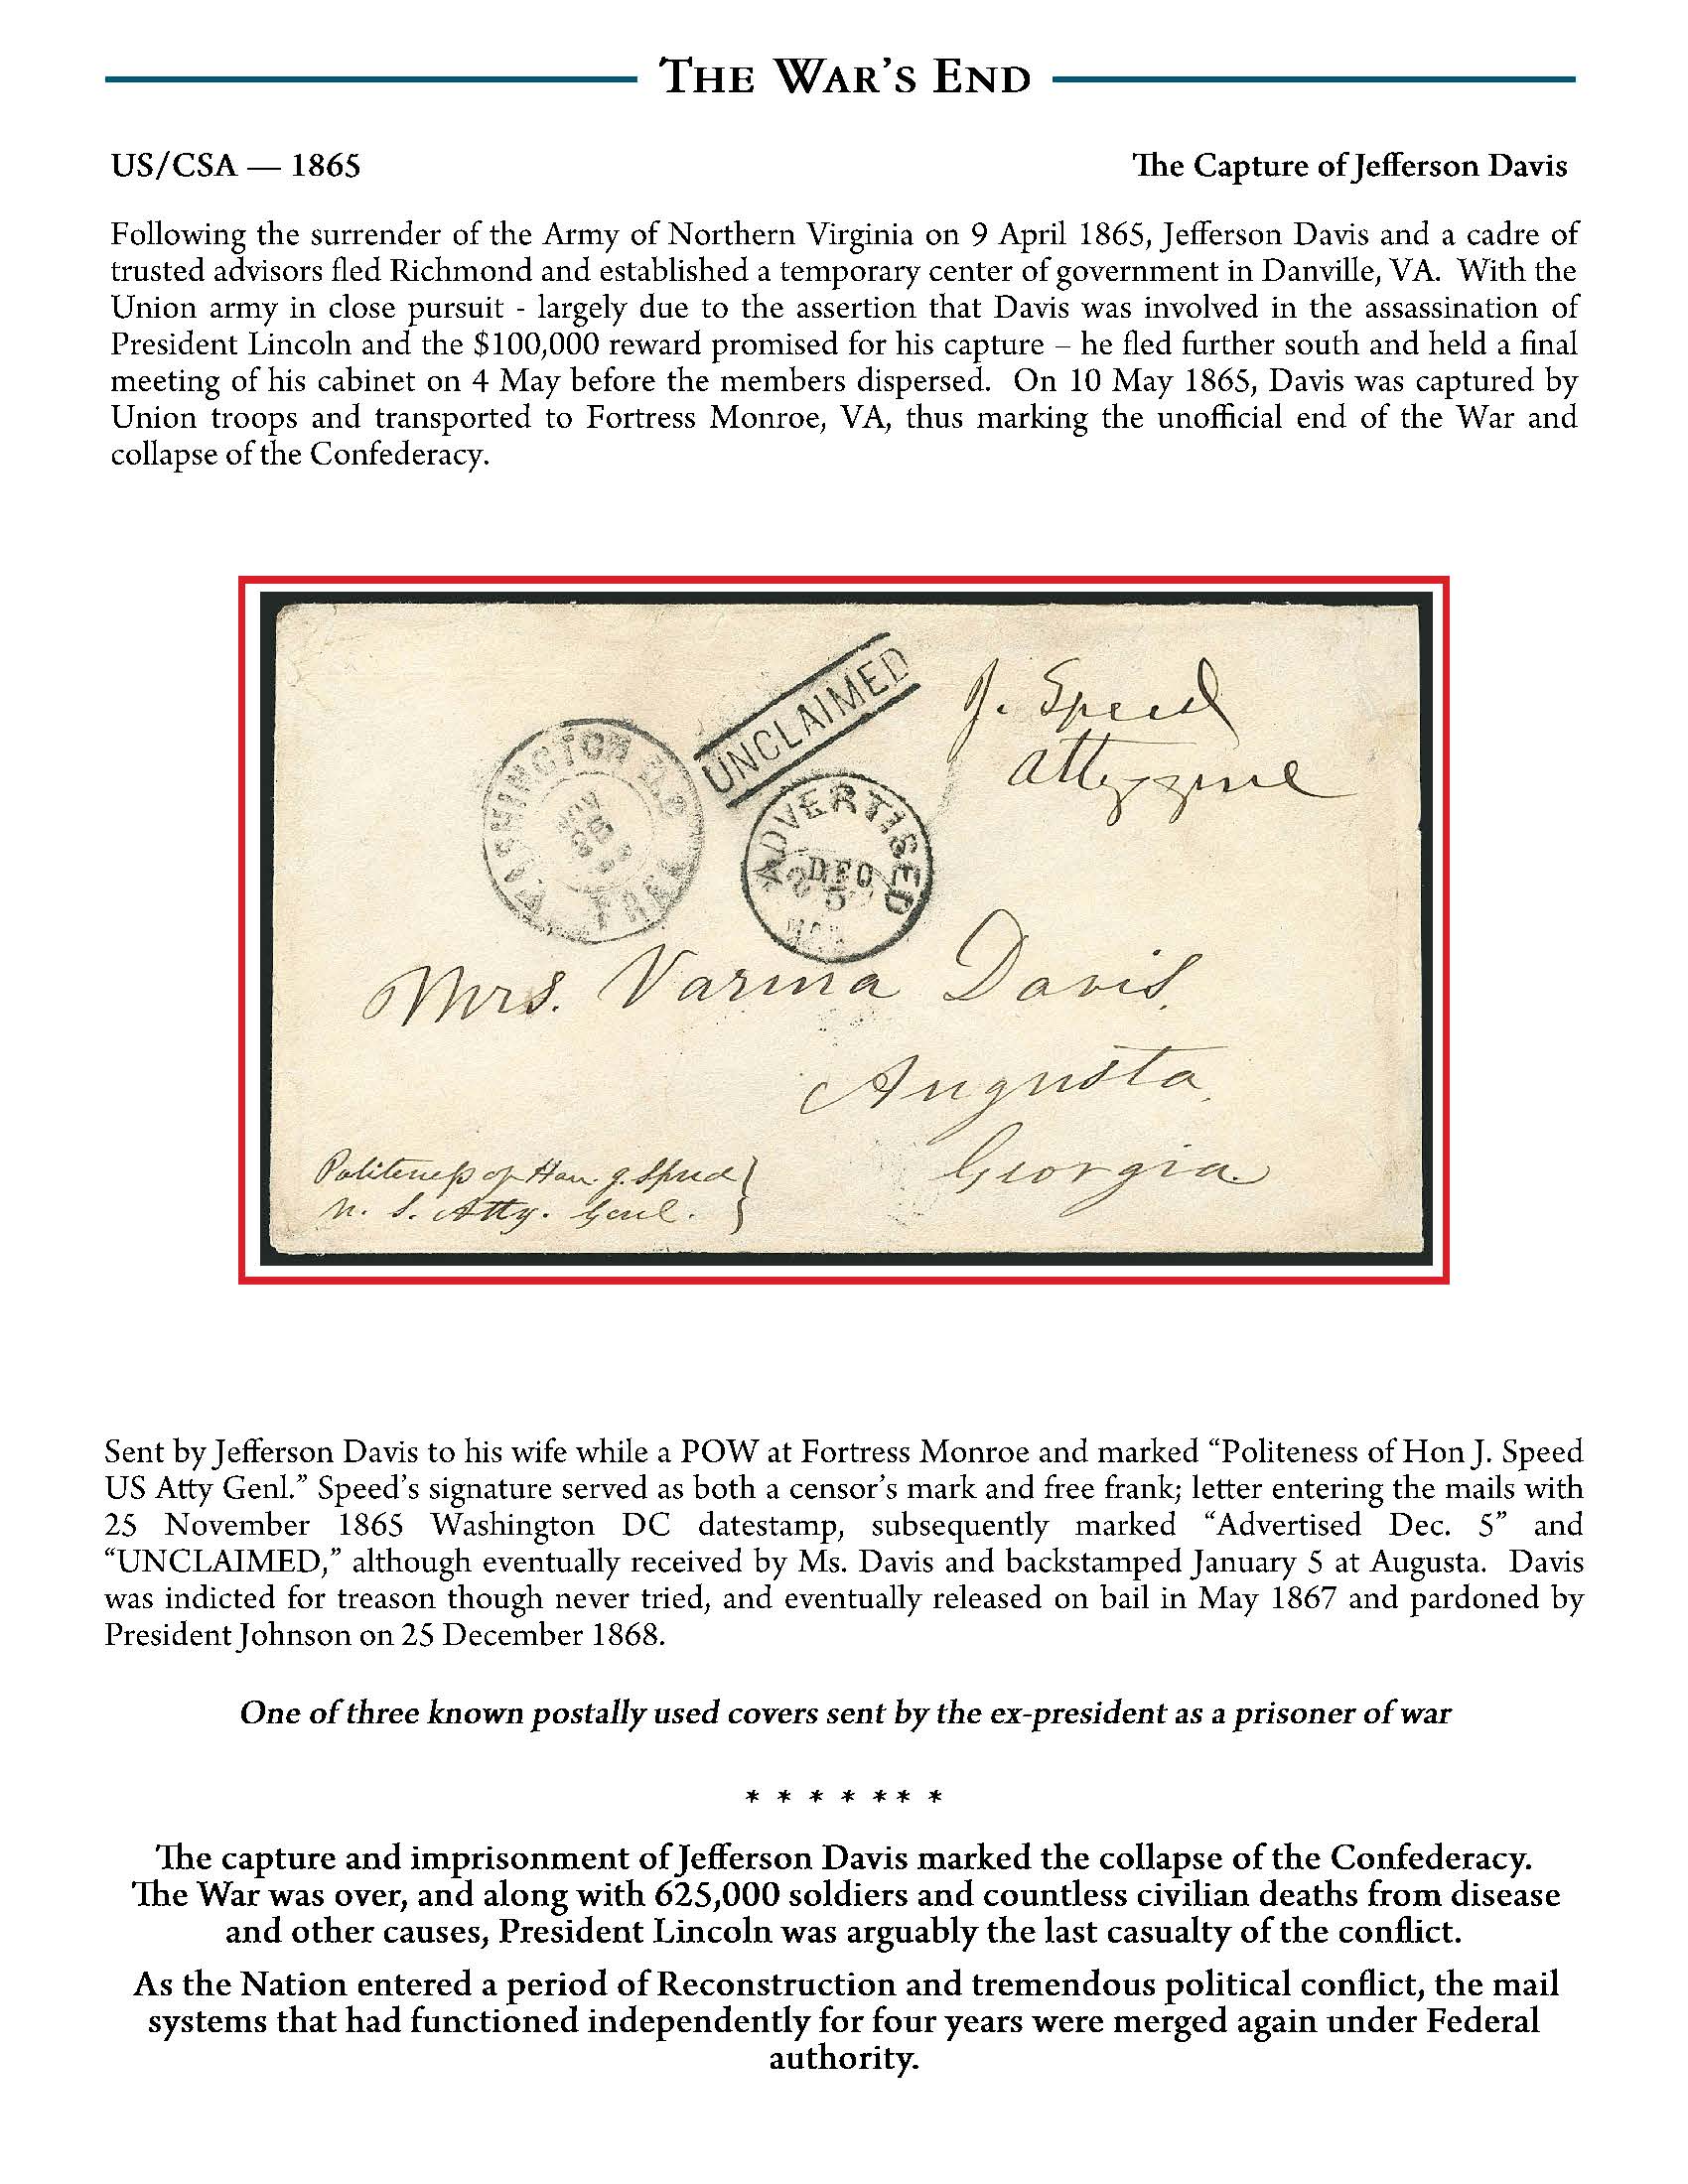 THE WAR'S END
US/CSA — 1865
The Capture of Jefferson Davis
Following the surrender of the Army of Northern Virginia on 9 April 1865, Jefferson Davis and a cadre of
trusted advisors fled Richmond and established a temporary center of government in Danville, VA.  With the
Union army in close pursuit - largely due to the assertion that Davis was involved in the assassination of
President Lincoln and the $100,000 reward promised for his capture – he fled further south and held a final
meeting of his cabinet on 4 May before the members dispersed.  On 10 May 1865, Davis was captured by
Union troops and transported to Fortress Monroe, VA, thus marking the unofficial end of the War and
collapse of the Confederacy.
UNCLAIMED
J. Speed
Atty genl
WASHINGTON
FREE
ADVERTISED
DEC
5
Mrs. Varina Davis,
Augusta,
Georgia.
Politeness of Hon. J. Speed
U. S. Atty. Genl.
Sent by Jefferson Davis to his wife while a POW at Fortress Monroe and marked “Politeness of Hon J. Speed
US Atty Genl.” Speed’s signature served as both a censor’s mark and free frank; letter entering the mails with
25 November 1865 Washington DC datestamp, subsequently marked “Advertised Dec. 5” and
“UNCLAIMED,” although eventually received by Ms. Davis and backstamped January 5 at Augusta.  Davis
was indicted for treason though never tried, and eventually released on bail in May 1867 and pardoned by
President Johnson on 25 December 1868.
One of three known postally used covers sent by the ex-president as a prisoner of war
* * * * * * *
The capture and imprisonment of Jefferson Davis marked the collapse of the Confederacy.
The War was over, and along with 625,000 soldiers and countless civilian deaths from disease
and other causes, President Lincoln was arguably the last casualty of the conflict.
As the Nation entered a period of Reconstruction and tremendous political conflict, the mail
systems that had functioned independently for four years were merged again under Federal
authority.